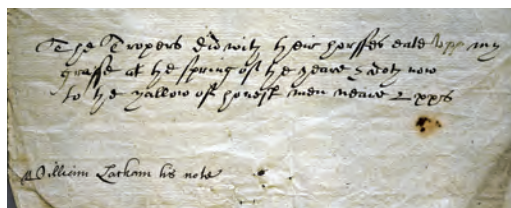 The Tropers did with their horsses eate upp my
grasse at the spring of the yeare & doth now
to the vallow of honest men neare 2 pps
William Lackam his note